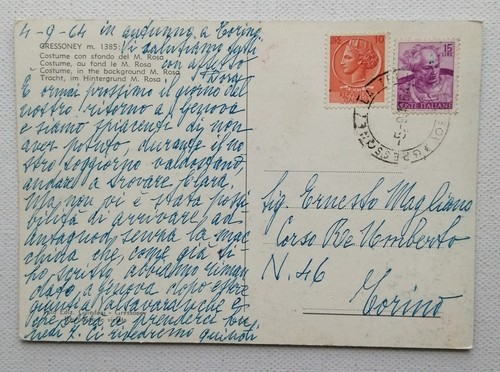 4-9-64 in andiamo a Torino
Vi salutiamo tutti
con affetto
Rosa
GRESSONEY m. 1385:
Costume con sfondo del M. Rosa
Costume, au fond le M. Rosa
Costume, in the background M. Rosa
Tracht, im Hintergrund M. Rosa
È ormai prossimo il giorno del
nostro ritorno a Genova
e siamo spiacenti di non
aver potuto, durante il no
stro soggiorno valdostano
andare a trovare Clara.
Ma non vi è stata possi
bilità di arrivare ad
Antagnod, senza la mac
china che, come già ti
ho scritto, abbiamo riman
dato, a Genova dopo essere
giunti a
che ora a prenderci lu
nedì 7. Ci rivedremo quindi
15
POSTE ITALIANE
GRESSONEY LA
Sig. Ernesto Magliano
Corso Re Umberto
N. 46
Torino